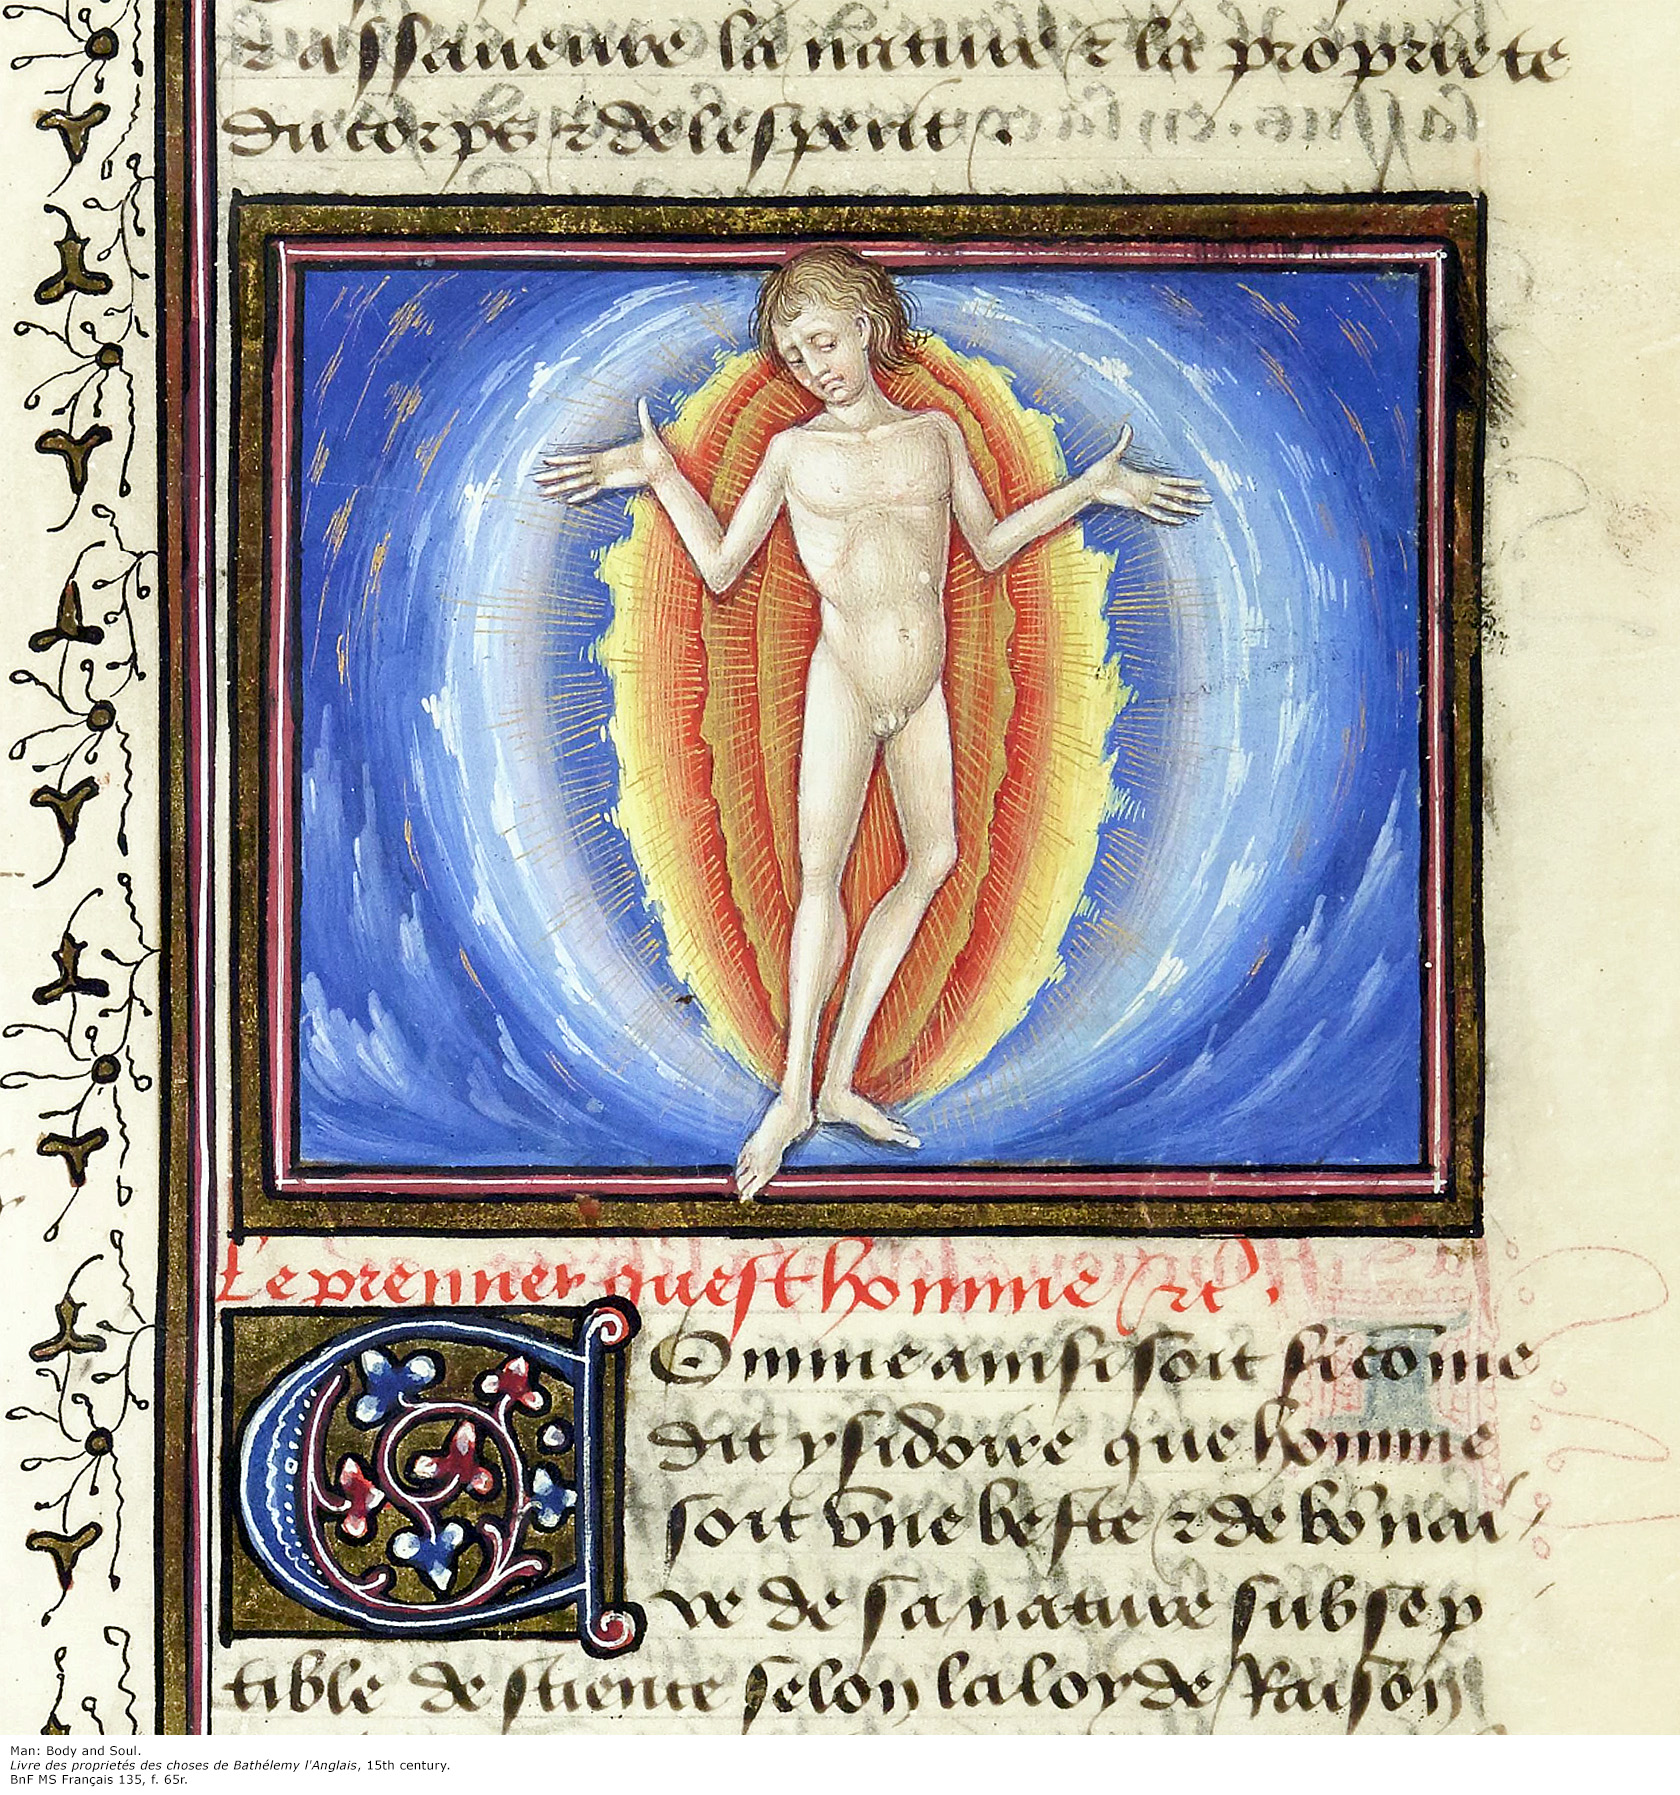 ⁊ assaueure la nature ⁊ la propriete
du corps ⁊ de lesperit .
Le premier quest homme ⁊c̃ .
Comme ainsi soit si cōme
dit ysidoire que homme
soit vne beste ⁊ de bōnai
re de sa nature subsep
tible de stience selon la loy de Raison
Man: Body and Soul.
Livre des proprietés des choses de Bathélemy l'Anglais, 15th century.
BnF MS Français 135, f. 65r.